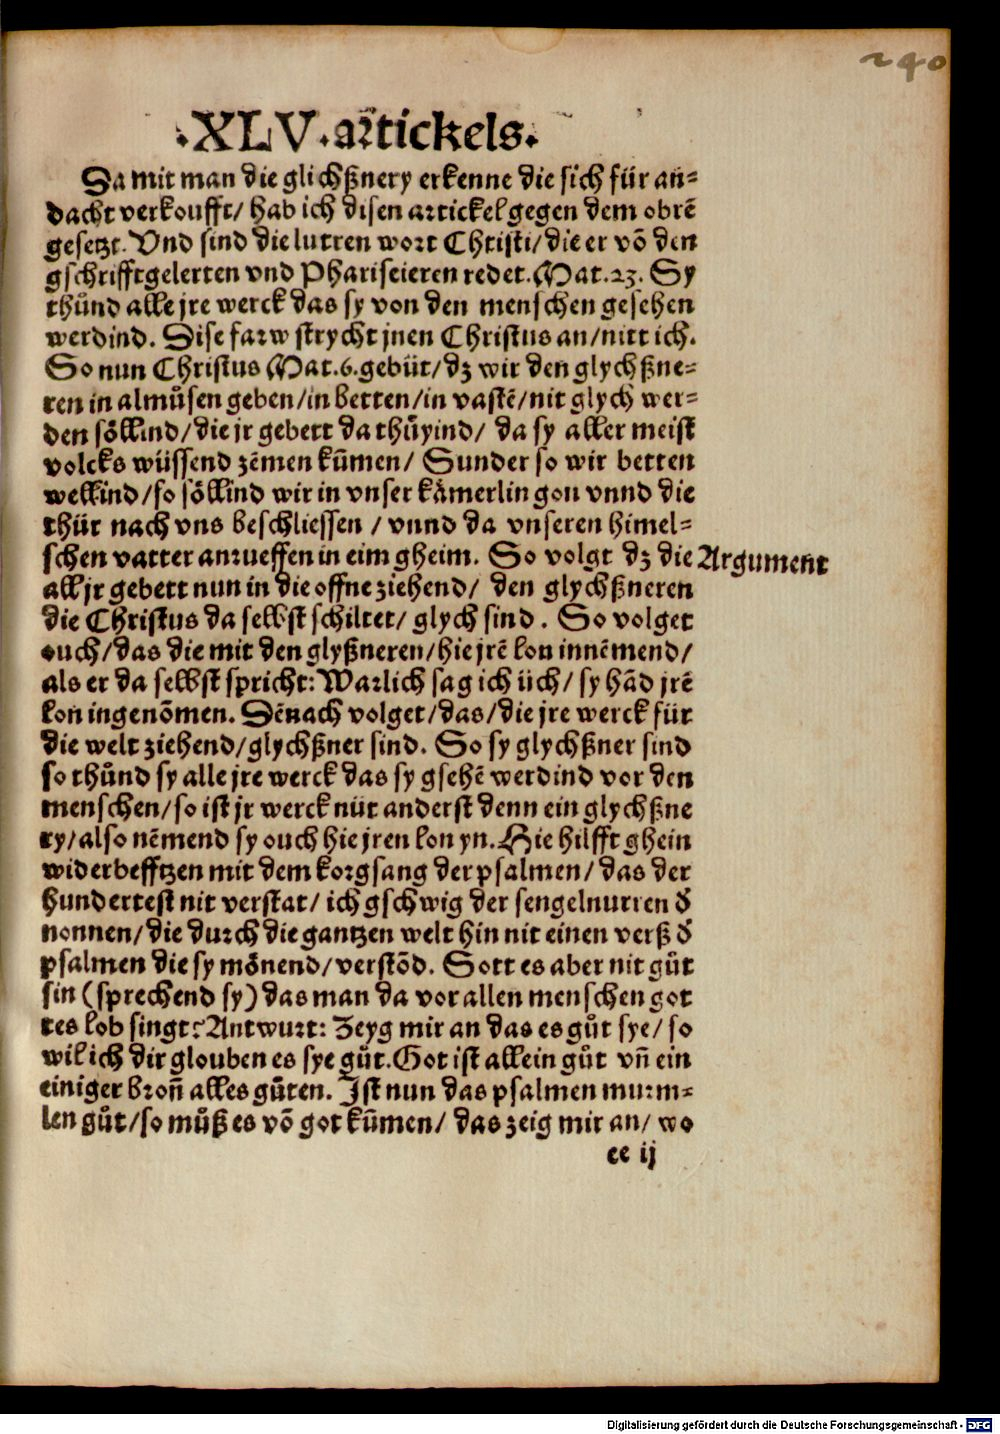 240
·XLV· artickels·
Da mit man die glichßnery erkenne die sich für an⸗
dacht verkoufft/ hab ich disen artickel gegen dem obrē
gesetzt. Vnd sind die lutren wort Christi/ die er vō den
gschrifftgelerten vnd Phariseieren redet. Mat. 23. Sy
thůnd alle jre werck das sy von den menschen gesehen
werdind. Dise farw strycht jnen Christus an/ nitt ich.
So nun Christus Mat. 6. gebüt/ dz wir den glychßne⸗
ren in almůsen geben/ in betten/ in vastē/ nit glych wer⸗
den söllind/ die jr gebett da thůyind/ da sy aller meist
volcks wüssend zēmen kūmen/ Sunder so wir betten
wellind/ so söllind wir in vnser kämerlin gon vnnd die
thür nach vns beschliessen / vnnd da vnseren himel⸗
schen vatter anrueffen in eim gheim. So volgt dz die
Argument
all jr gebett nun in die offne ziehend/ den glychßneren
die Christus da selbst schiltet/ glych sind . So volget
ouch/ das die mit den glyßneren/ hie jrē lon innēmend/
als er da selbst spricht: Warlich sag ich üch/ sy hād jrē
lon ingenōmen. Dēnach volget/ das/ die jre werck für
die welt ziehend/ glychßner sind. So sy glychßner sind
so thůnd sy alle jre werck das sy gsehē werdind vor den
menschen/ so ist jr werck nüt anderst denn ein glychßne
ry/ also nēmend sy ouch hie jren lon yn. Hie hilfft ghein
widerbefftzen mit dem korgsang der psalmen/ das der
hundertest nit verstat/ ich gschwig der sengelnurren d̕
nonnen/ die durch die gantzen welt hin nit einen verß d̕
psalmen die sy mönend/ verstōd. Sott es aber nit gůt
sin (sprechend sy) das man da vor allen menschen got
tes lob singt? Antwurt: Zeyg mir an das es gůt sye/ so
wil ich dir glouben es sye gůt. Got ist allein gůt vn̄ ein
einiger bron̄ alles gůten. Ist nun das psalmen murm⸗
len gůt/ so můß es vō got kūmen/ das zeig mir an/ wo
ee ij
Digitalisierung gefördert durch die Deutsche Forschungsgemeinschaft - DFG